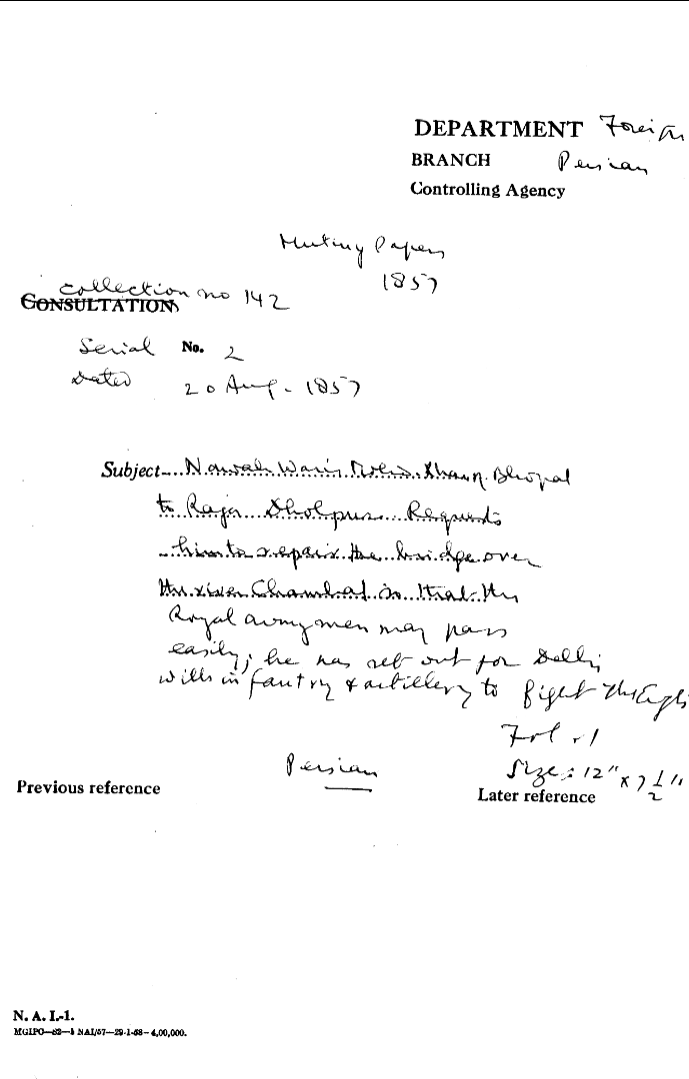 DEPARTMENT Foreign
BRANCH Persian
Controlling Agency
Mutiny Papers
1857
collection no 142
CONSULTATION
Serial No. 2
Dated 20 Aug. 1857
Subject— Nawab Waris Mohd. Khan of Bhopal
to Raja Dholpur. Requests
him to repair the bridge over
the river Chambal so that the
Royal army men may pass
easily; he has set out for Delhi
with infantry & artillery to fight the
Fol. 1
Persian
Size: 12" x 7 1/2"
Previous reference
Later reference
N. A. I.-1.
MGIPO—S2—1 NAI/67—29-1-68—4,00,000.